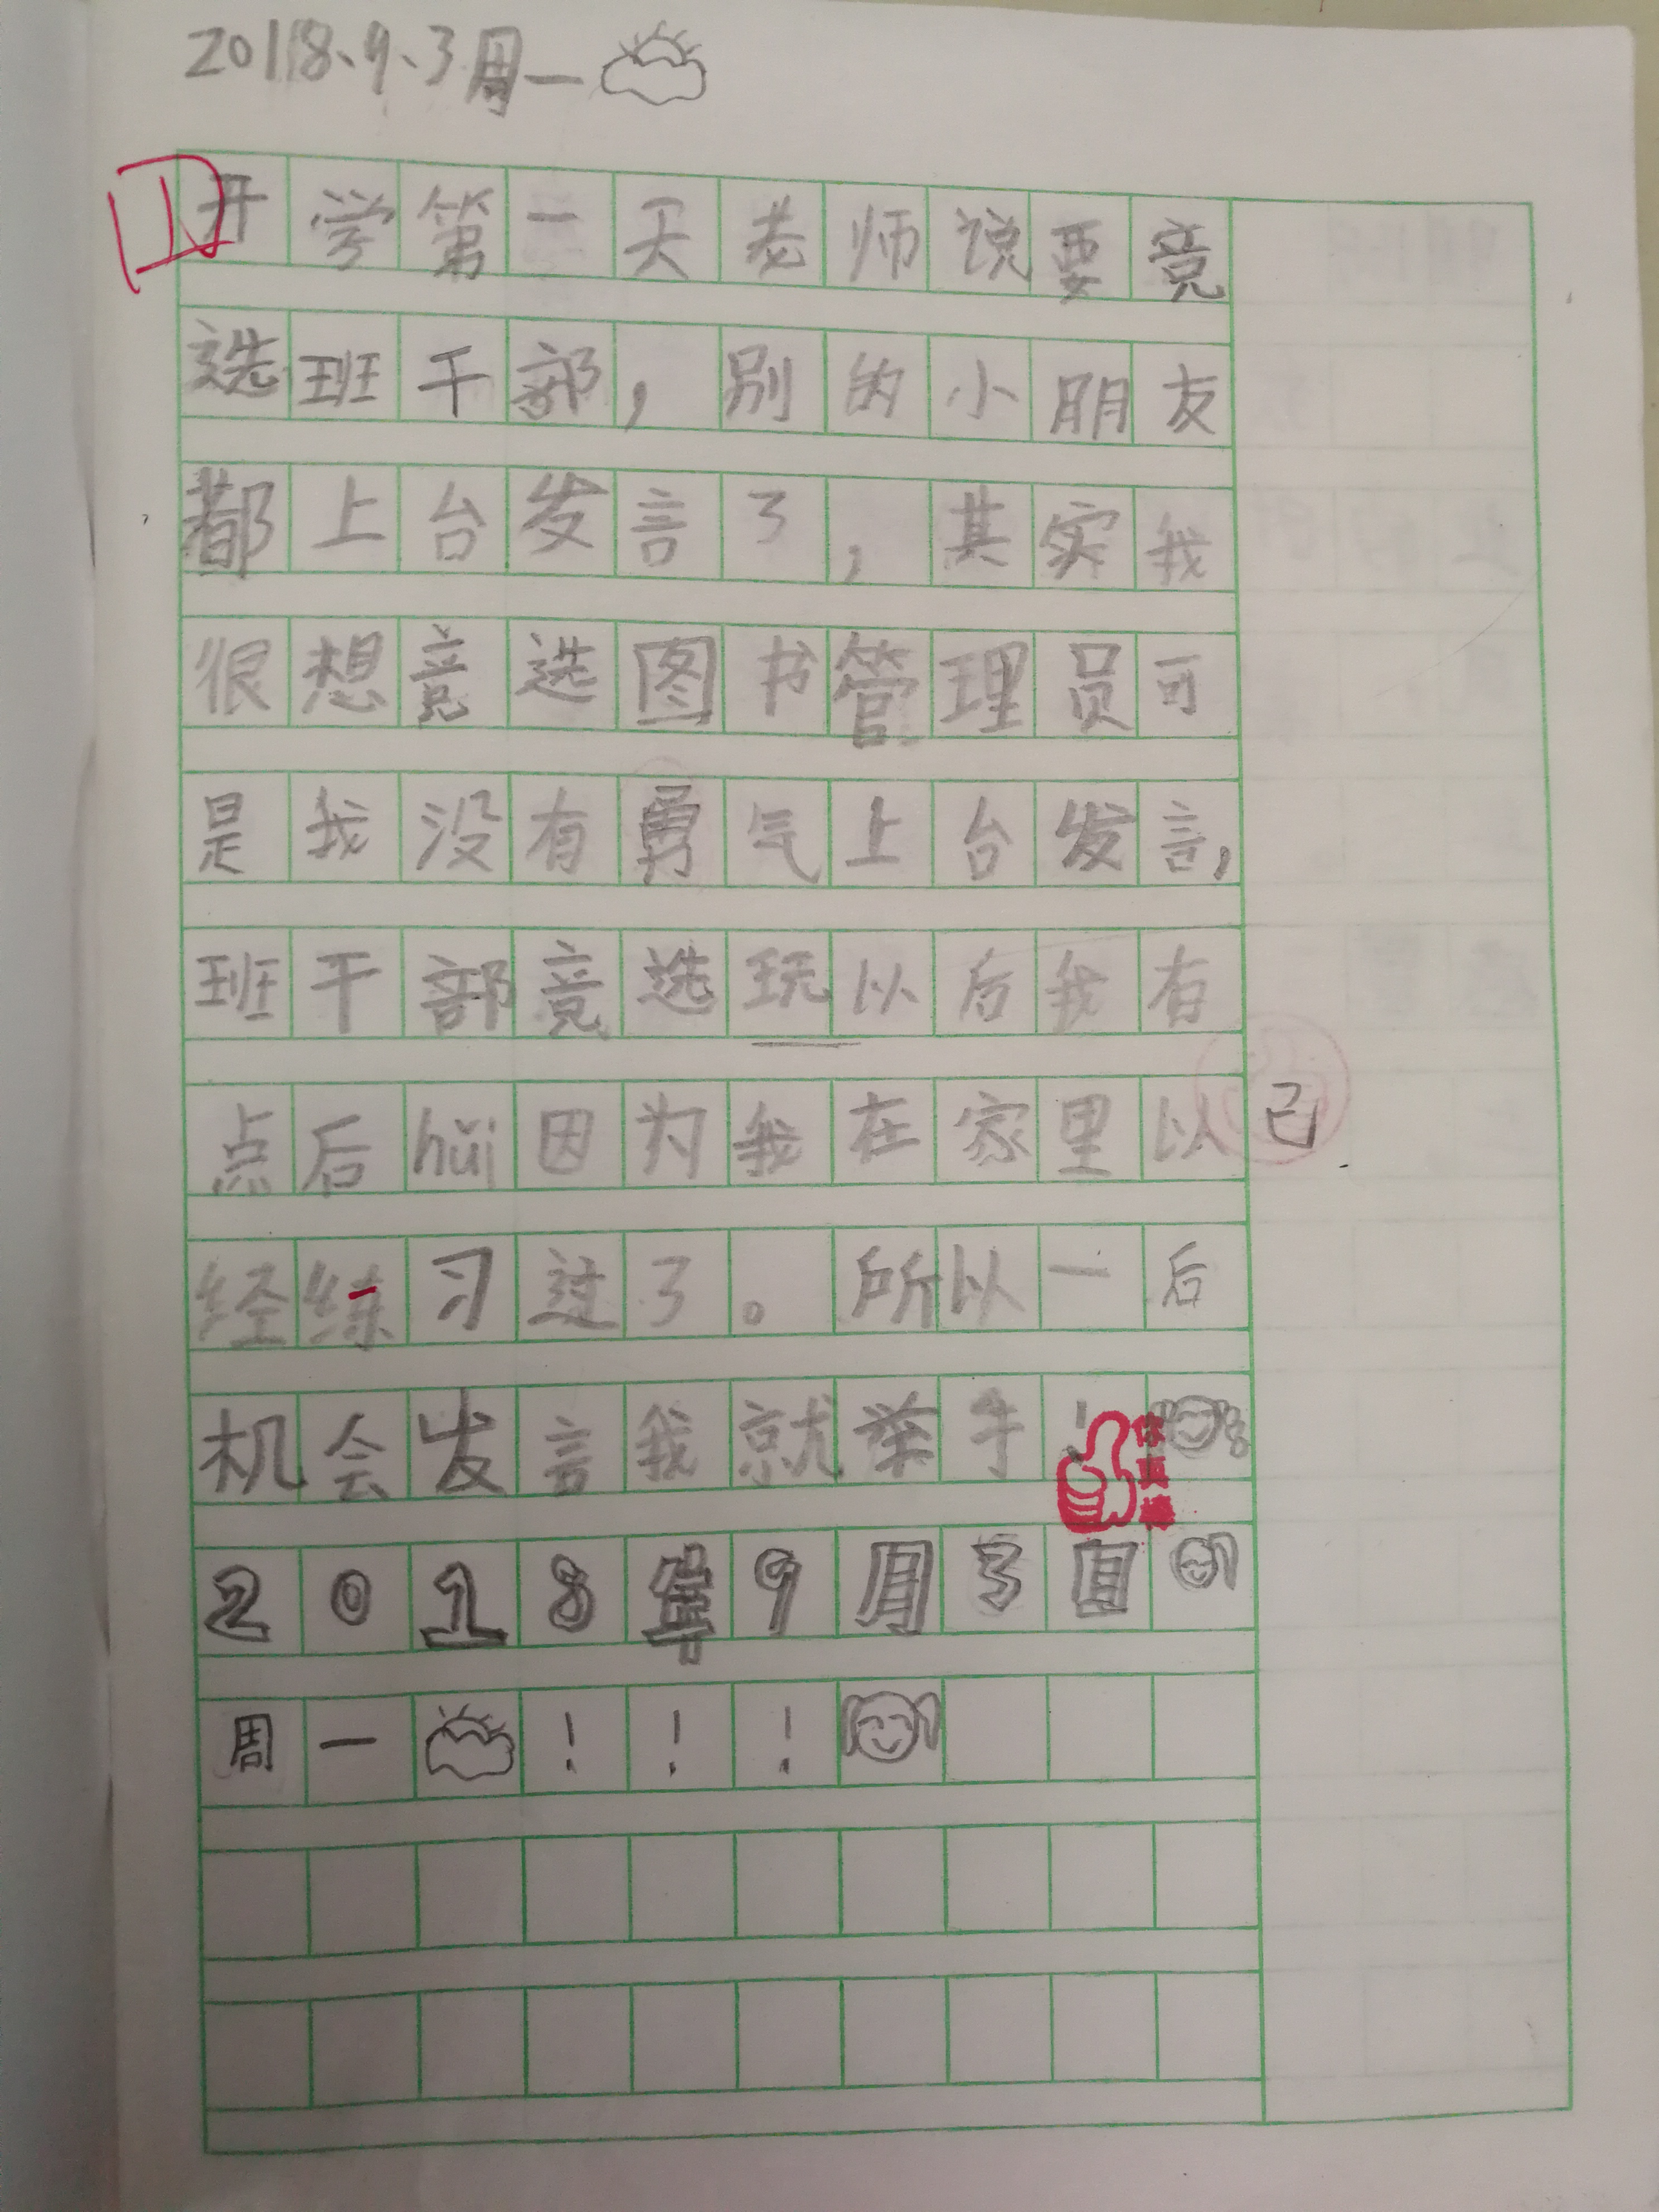 2018、9、3周一
开学第一天老师说要竟
选班干部，别的小朋友
都上台发言了，其实我
很想竟选图书管理员可
是我没有勇气上台发言，
班干部竟选玩以后我有
点后huǐ因为我在家里以
已
经练习过了。所以一后
机会发言我就举手！
你真棒
2018年9月3日
周一！！！